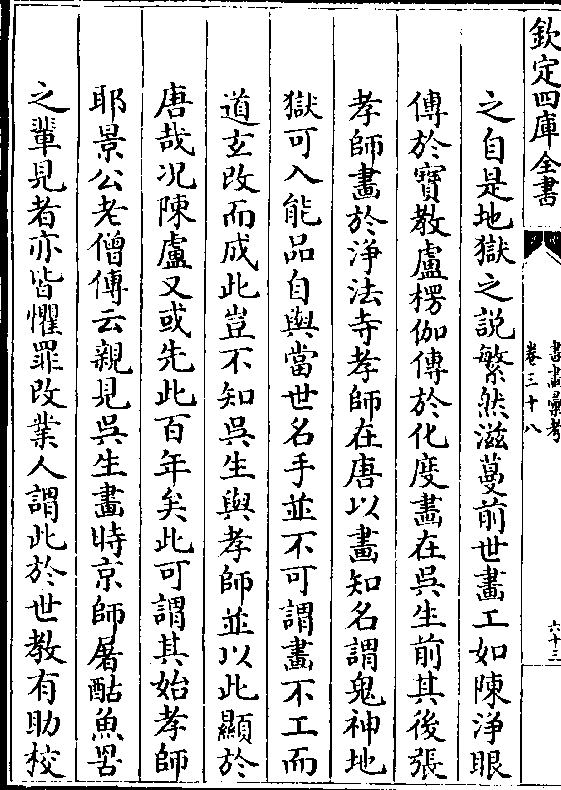 欽定四庫全書
書畫彚考
卷三十八
六十三
之自是地獄之說繁然滋蔓前世畫工如陳淨眼
傳於寶教盧楞伽傳於化度畫在吳生前其後張
孝師畫於浄法寺孝師在唐以畫知名謂鬼神地
獄可入能品自與當世名手並不可謂畫不工而
道玄改而成此豈不知吳生與孝師並以此顯於
唐哉况陳盧又或先此百年矣此可謂其始孝師
耶景公老僧傳云親見吳生畫時京師屠酤魚罟
之輩見者亦皆懼罪改業人謂此於世教有助校